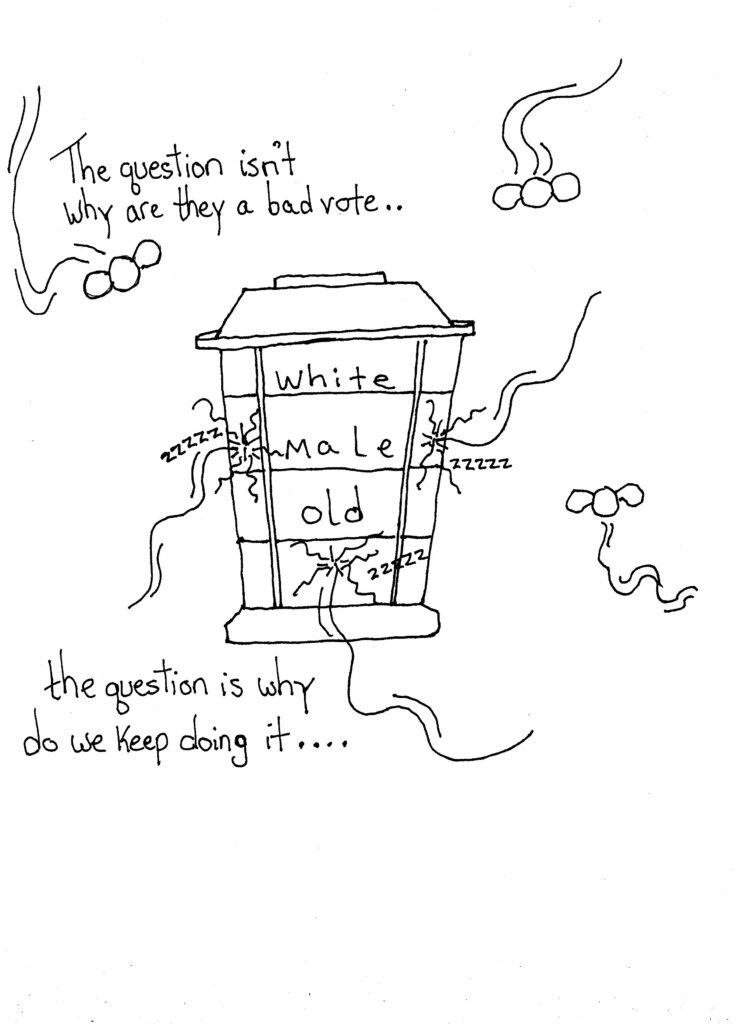 The question isn't
why are they a bad vote..
White
Male
zzzzz
zzzzz
old
zzzzz
the question is why
do we keep doing it....